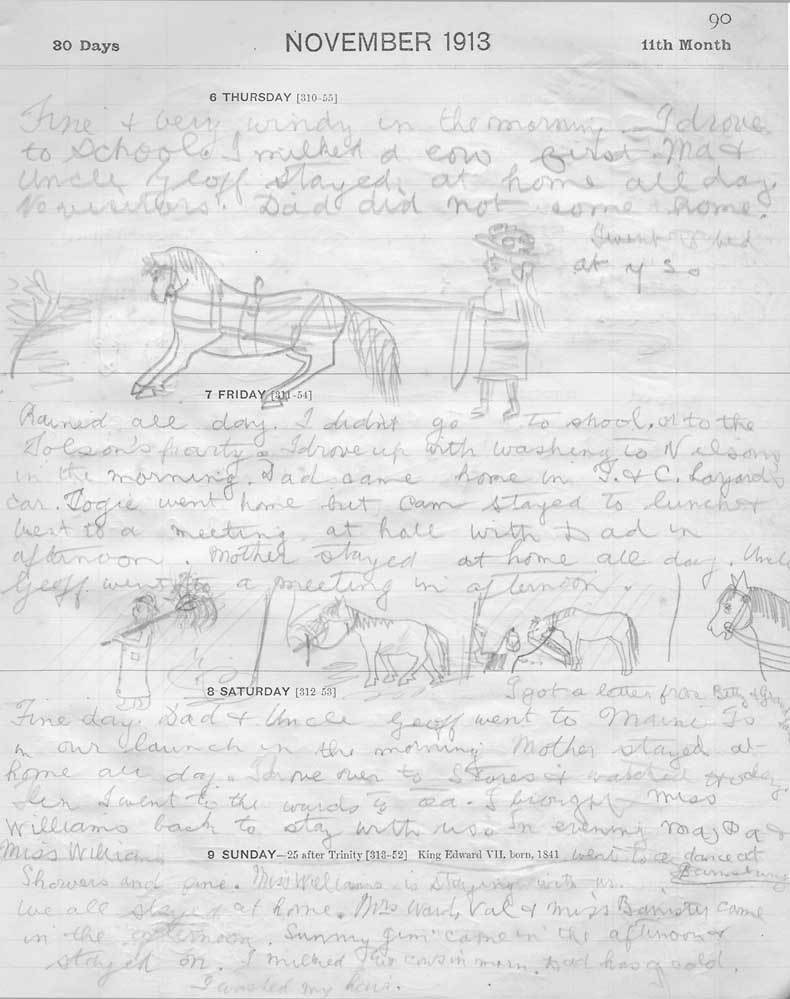 90
30 Days NOVEMBER 1913 11th Month
6 THURSDAY [310-55]
Fine & very windy in the mornin. I drove
to School. I milked a cow first. Ma &
Uncle Geoff stayed at home all day.
No visitors. Dad did not come home.
I went to bed
at
7 FRIDAY [311-54]
Rained all day. I didnt go to shool, or to the
Tolson's party. I drove up with washing to Nilsons
in the morning. Dad came home in T. & C. Layard's
car. Togie went home but Cam stayed to lunch &
went to a meeting at hall with Dad in
afternoon. Mother stayed at home all day. Uncle
Geoff went to a meeting in afternoon.
8 SATURDAY [312-53]
I got a letter from Betty &
Fine day. Dad & Uncle Geoff went to Maine Is
in our launch in the morning. Mother stayed at
home all day. I drove over to Stores & watched
I went to the wards to tea. I brought Miss
Williams back to stay with us. In evening
Miss William went to a dance at
9 SUNDAY—25 after Trinity [313-52] King Edward VII. born, 1841
Showers and fine. Miss Williams is staying with us.
We all stayed at home. Mrs Ward, Val & Miss Banister came
in the afternoon. Sunny Jim came in the afternoon &
stayed on. I milked in morn. Dad has a cold.
I washed my hair.